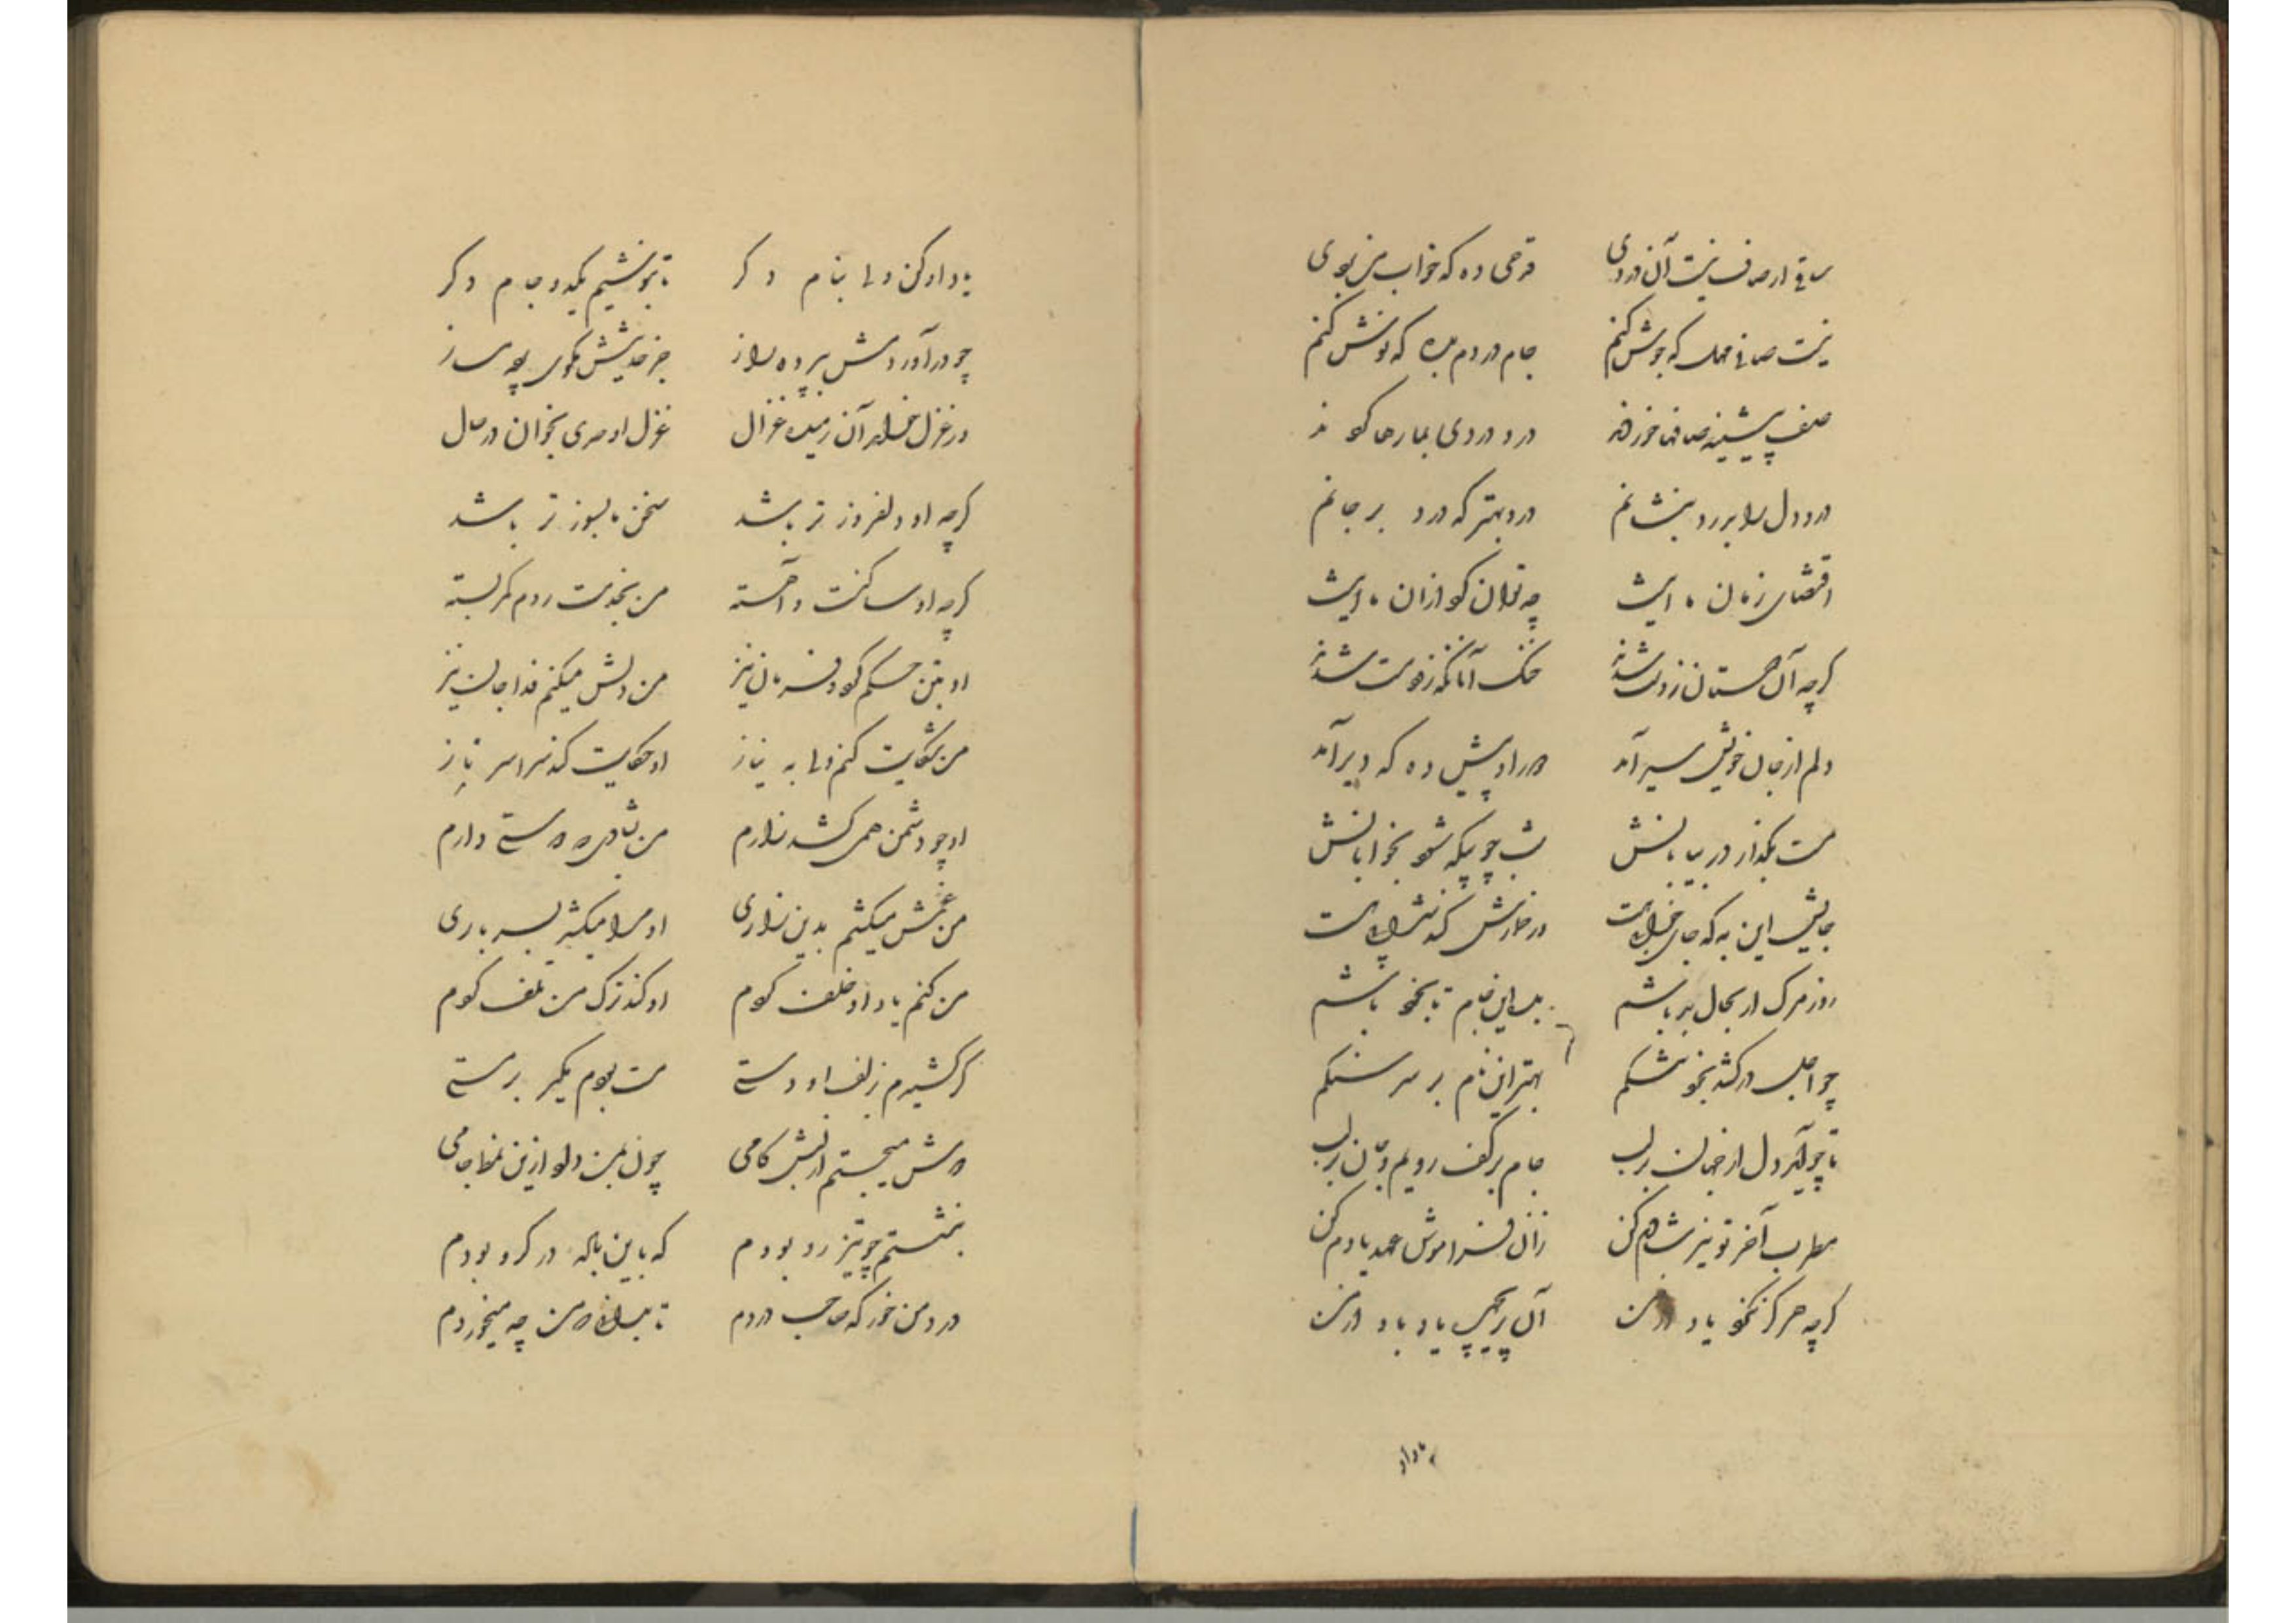 ساقی ار صاف نیست آن دردی قدحی ده که خواب من بودی
نیست صافی مهل که جوش کنم جام دردم بده که نوش کنم
صف پیشینه صافها خوردند درد دردی بما رها کردند
درد دل را بدرد بنشانم درد بهتر که درد بر جانم
اقتضای زمان ما اینست چه توان کرد ازان ما اینست
گرچه آن همستان ز دست شدند خنک آنانکه زود مست شدند
دلم از جان خویش سیر آمد در او پیش ده که دیر آمد
مست بگذار در بیابانش شب چو بیگه شود بخوابانش
جایش این به که جای خرابست در خانش که نه شرابست
روز مرگ ار بحال بد باشم بده این جام تا بخود باشم
چو اجل درکشد بخود تنگم بهتر این جام بر سر سنگم
تا چو آید دل از جهان بر لب جام بر کف رویم و جان بر لب
مطرب آخر تو نیز شادم کن زان فراموش عهد یادم کن
گرچه هرگز نکرد یاد از من آن پریچهره یاد باد از من
بامداد
بامداد کن ولی بنام دگر تا بنوشیم یکدو جام دگر
چو درآوردمش بپرده راز جز حدیثش مگوی و چه ساز
در غزل خواهد آن رمیده غزال غزل اوحدی بخوان در حال
گرچه او دلفروزتر باشد سخن ما بسوزتر باشد
گرچه او ساکنست و آهسته من بخدمت روم کمر بسته
او بتن حکم کرد و فرمان نیز من دلش میکنم فدا جان نیز
من شکایت کنم ولی به نیاز او حکایت کند سراسر ناز
او چو دشمن همی کشد زارم من بشادی که دوستی دارم
من غمش میکشم بدین زاری او مرا میکشد بسر باری
من کنم یاد او خلف کردم او کند ترک من تلف کردم
گر کشیدم زلف او دستی مست بودم مگیر بر مستی
دوش میجستم از لبش کامی چون بمن داد ازین نمط جامی
بنشستم چو تیزرو بودم که باین باله در گرو بودم
درد من خور که صاحب دردم تا بدانی که من چه میخوردم